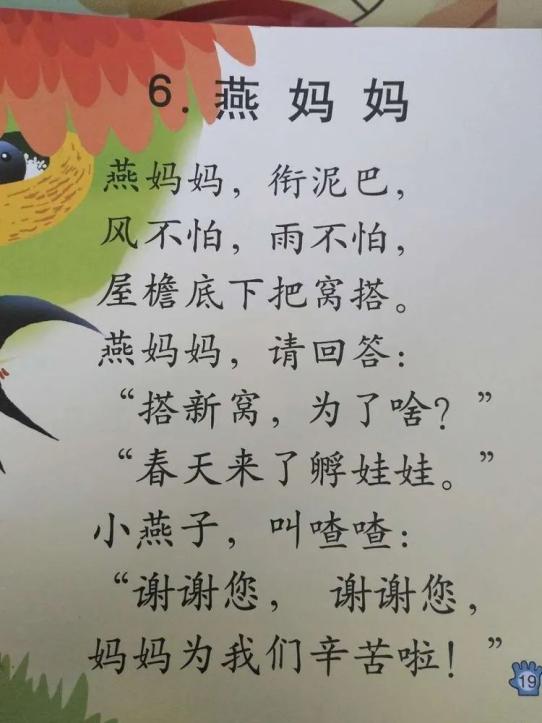 6. 燕妈妈
燕妈妈，衔泥巴，
风不怕，雨不怕，
屋檐底下把窝搭。
燕妈妈，请回答：
“搭新窝，为了啥？”
“春天来了孵娃娃。”
小燕子，叫喳喳：
“谢谢您， 谢谢您，
妈妈为我们辛苦啦！”
19